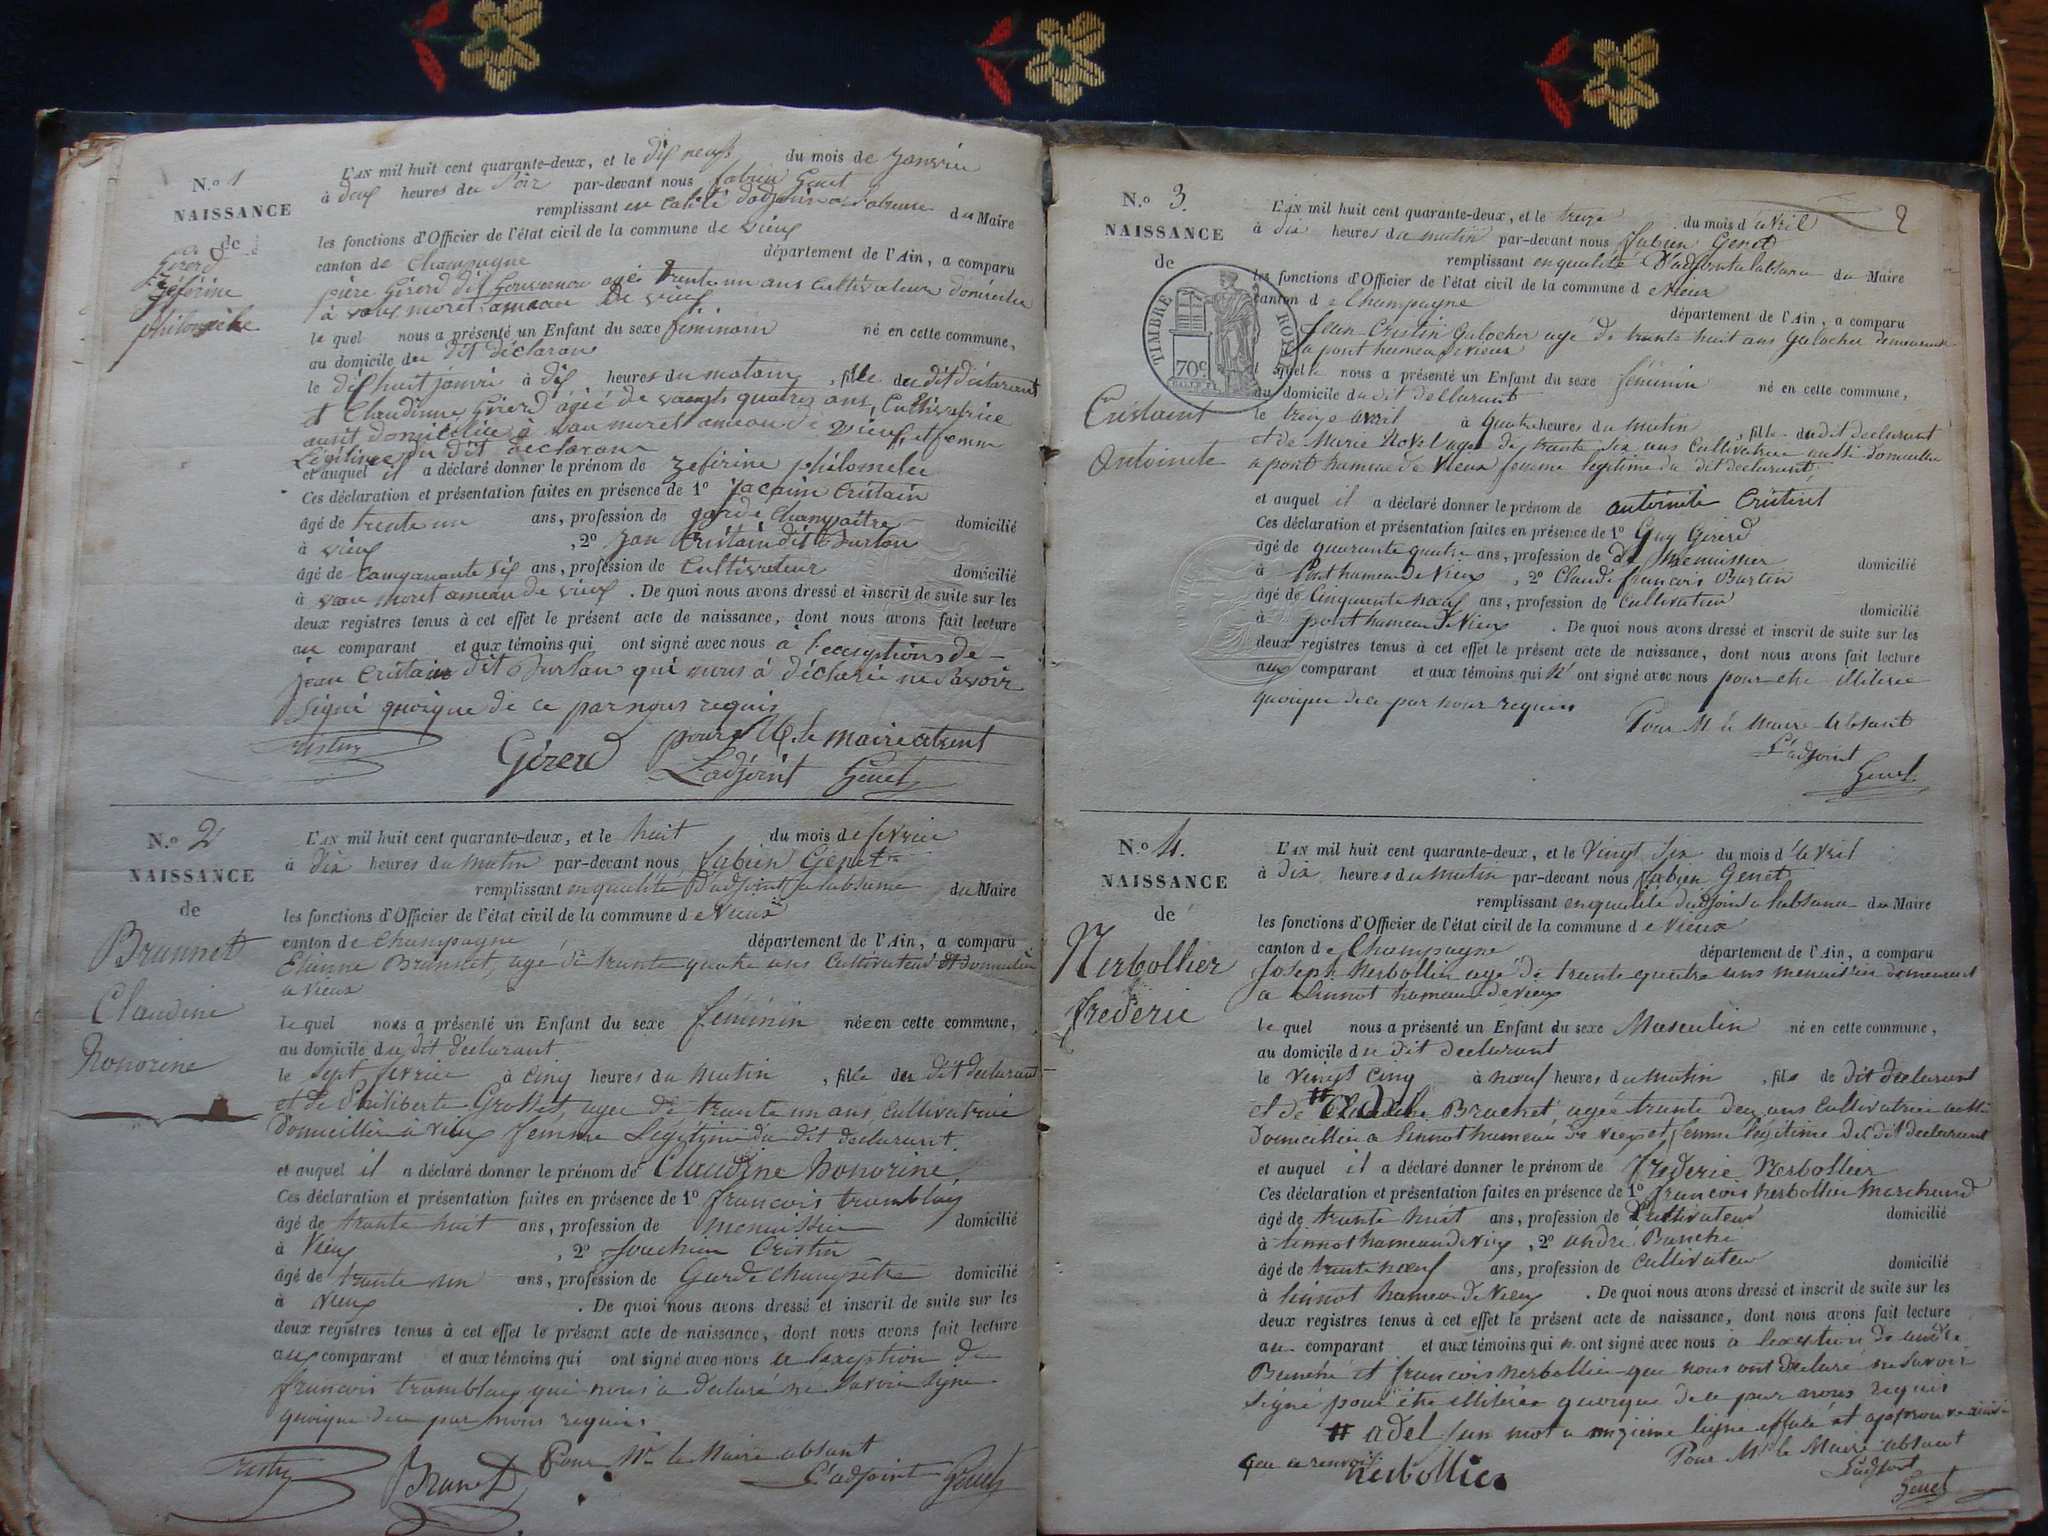 N.o 1
NAISSANCE
de
Gérerd
Zéférine
philomèle
L'AN mil huit cent quarante-deux, et le dis neuf du mois de Janvié
à deus heures du Soir par-devant nous fabien Genet
remplissant en calité dadjoin a labsense du Maire
les fonctions d'Officier de l'état civil de la commune de vieus
canton de Champagne département de l'Ain, a comparu
pière Gérerd dit Gouverneu agé trante un ans cultivateur domicilié
à vaus moret ameau de vieus
le quel nous a présenté un Enfant du sexe féminain né en cette commune,
au domicile du dit déclaran
le dishuit janvié à dis heures du matain, fille du dit déclarant
et Claudinne Gérerd agéé de vaingt quatre ans, Cultivatrice
ausit domiciliée à vau moret ameau de vieus, et femme
Légitime du dit declaran
et auquel il a déclaré donner le prénom de zéférine philomelee
Ces déclaration et présentation faites en présence de 1o Jacaim Cristain
âgé de trente un ans, profession de garde Champaitre domicilié
à vieus, 2o Jan Cristain dit Burlan
âgé de Cainquante sis ans, profession de Cultivateur domicilié
à vau moret ameau de vieus. De quoi nous avons dressé et inscrit de suite sur les
deux registres tenus à cet effet le présent acte de naissance, dont nous avons fait lecture
au comparant et aux témoins qui ont signé avec nous à l'exceptions de
jean Cristain dit Burlan qui nous à déclarée ne Savoir
Signé quoique de ce par nous requis
Cristin Gérerd pour M. le maire absent
L'adjoint Genet
N.o 2
NAISSANCE
de
Brunnet
Claudine
honorine
L'AN mil huit cent quarante-deux, et le huit du mois de fevrié
à dix heures du matin par-devant nous fabien Genet
remplissant en qualité d'adjoint a labsanse du Maire
les fonctions d'Officier de l'état civil de la commune de Vieux
canton de Champagne département de l'Ain, a comparu
Etienne Brunnet, agé de trante quatre ans Cultivateur et domicilié
a Vieux
le quel nous a présenté un Enfant du sexe féminin née en cette commune,
au domicile du dit déclarant
le Sept fevrié à Cinq heures du matin, fille du dit declarant
et de Philiberte Grosset, agee de trante un ans, cultivatrice
domicilliée à Vieux femme Légitime du dit declarant.
et auquel il a déclaré donner le prénom de Claudine honorine
Ces déclaration et présentation faites en présence de 1o francois tramblay
âgé de trante huit ans, profession de menuissier domicilié
à Vieux, 2o Joachim Cristin
âgé de trante un ans, profession de Garde Champêtre domicilié
à Vieux. De quoi nous avons dressé et inscrit de suite sur les
deux registres tenus à cet effet le présent acte de naissance, dont nous avons fait lecture
aux comparant et aux témoins qui ont signé avec nous a lexeption de
francois tramblay qui nous a declaré ne Savoir Signé
quoique de ce par nous requis
Cristin Brunet Pour Mr le Maire absant
L'adjoint Genet
2
N.o 3.
NAISSANCE
de
Cristaint
Antoinete
TIMBRE ROYAL
70c
L'AN mil huit cent quarante-deux, et le treize du mois d'avril
à dix heures du matin par-devant nous fabien Genet
remplissant en qualité D'adjoint a labsanse du Maire
les fonctions d'Officier de l'état civil de la commune de Vieux
canton de Champagne département de l'Ain, a comparu
Jean Cristin Galocher agé de trante huit ans Galocher demeurant
a pont hameau de vieux
le quel nous a présenté un Enfant du sexe féminin né en cette commune,
au domicile du dit declarant
le treize avril à quatre heures du matin, fille du dit declarant
et de Marie Novel agee de trante six ans Cultivatrice aussi domicillié
a pont hameau de Vieux femme legitime du dit declarant
et auquel il a déclaré donner le prénom de antoinete Cristint
Ces déclaration et présentation faites en présence de 1o Guy Gererd
âgé de quarante quatre ans, profession de menuisier domicilié
à Pont hameau de Vieux, 2o Claude francois Burtin
âgé de Cinquante neuf ans, profession de cultivateur domicilié
à pont hameau de Vieux. De quoi nous avons dressé et inscrit de suite sur les
deux registres tenus à cet effet le présent acte de naissance, dont nous avons fait lecture
aux comparant et aux témoins qui n'ont signé avec nous pour etre illiterée
quoique de ce par nour requis
Pour M le maire Absant
L'adjoint
Genet
N.o 4.
NAISSANCE
de
Nerbollier
frederic
L'AN mil huit cent quarante-deux, et le Vingt Six du mois d'avril
à dix heures du matin par-devant nous fabien Genet
remplissant en qualité d'adjoint a labsanse du Maire
les fonctions d'Officier de l'état civil de la commune de Vieux
canton de Champagne département de l'Ain, a comparu
Joseph Nerbollier agé de trante quatre ans menuisier demeurant
a Linnot hameau de Vieux
le quel nous a présenté un Enfant du sexe Masculin né en cette commune,
au domicile du dit declarant
le vingt cinq à neuf heures du matin, fils de dit declarant
et de Brachet agée trante deux ans Cultivatrice aussi
domicilliée a Linnot hameau de Vieux et femme légitime du dit declarant
et auquel il a déclaré donner le prénom de frederic Nerbollier
Ces déclaration et présentation faites en présence de 1o francois Nerbollier Marchand
âgé de trante huit ans, profession de Cultivateur domicilié
à Linnot hameau de Vieux, 2o andre Banché
âgé de trante neuf ans, profession de cultivateur domicilié
à Linnot hameau de Vieux. De quoi nous avons dressé et inscrit de suite sur les
deux registres tenus à cet effet le présent acte de naissance, dont nous avons fait lecture
au comparant et aux témoins qui n ont signé avec nous a lexeption de andre
Banché et francois Nerbollier que nous ont declaré ne Savoir
Signé pour être illiterée quoique de ce par nous requis
# adel un mot a onzieme ligne effacé et approuve
que ce renvoi
Pour Mr le Maire absant
Ladjoint
Nerbollier Genet